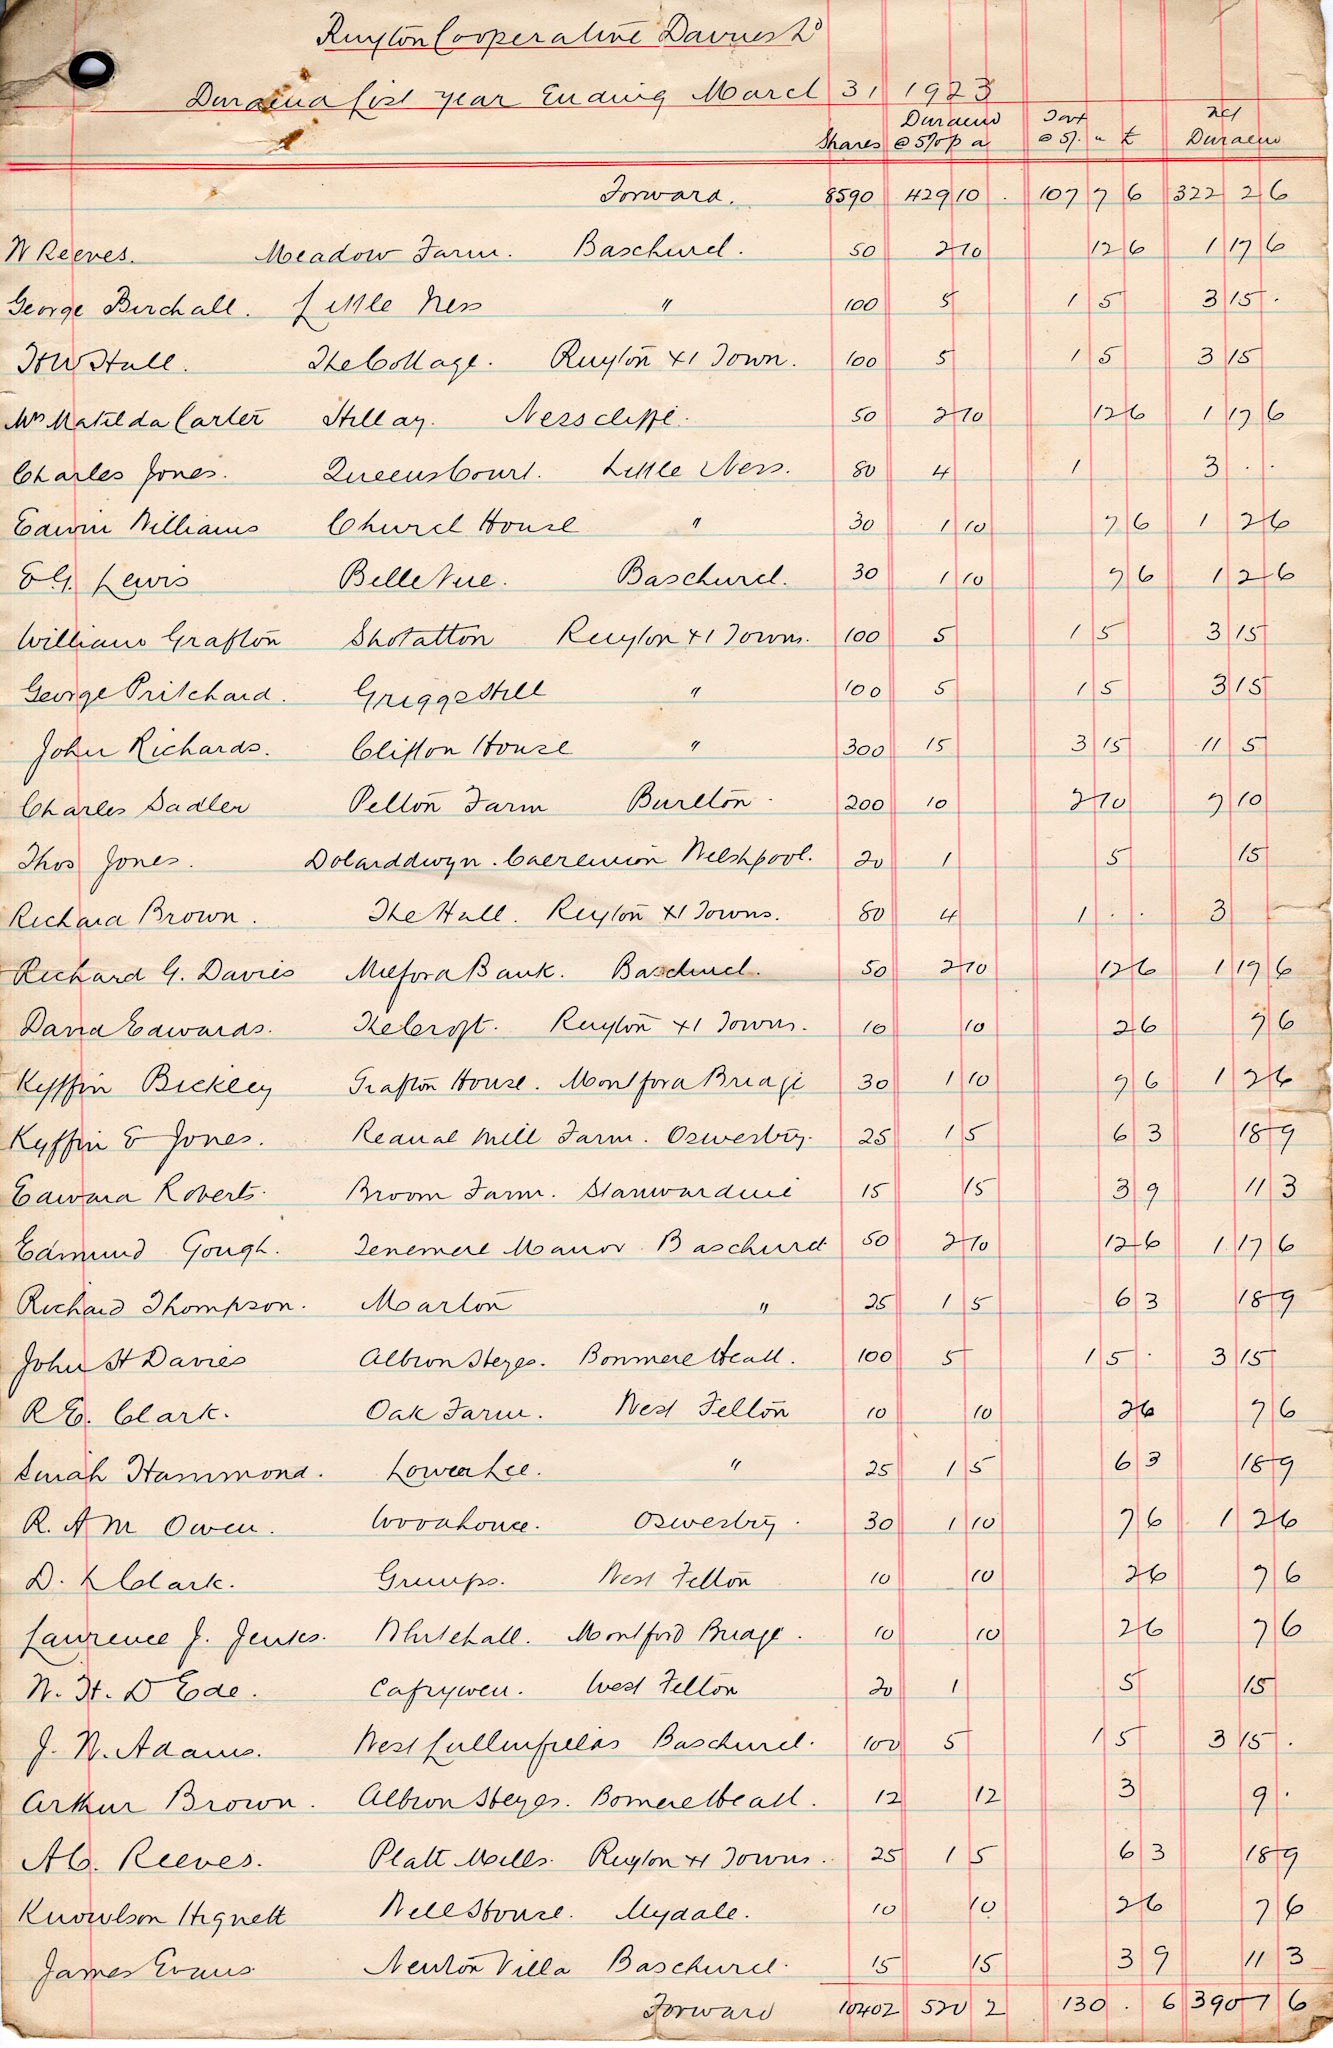 Ruyton Cooperative Dairies Ld
Dividend list year Ending March 31 1923
Shares Dividend @ 5% p a Tax @ 5/- in £ Net Dividend
Forward. 8590 429 10 . 107 7 6 322 2 6
W Reeves. Meadow Farm. Baschurch. 50 2 10 12 6 1 17 6
George Birchall. Little Ness " 100 5 1 5 3 15 .
H W Hall. The Cottage. Ruyton XI Town. 100 5 1 5 3 15
Mrs Matilda Carter Hillay. Nesscliffe. 50 2 10 12 6 1 17 6
Charles Jones. Queens Court. Little Ness. 80 4 1 3 . .
Edwin Williams Church House " 30 1 10 7 6 1 2 6
E G. Lewis Belle Vue. Baschurch. 30 1 10 7 6 1 2 6
William Grafton Shotatton Ruyton XI Towns. 100 5 1 5 3 15
George Pritchard. Griggs Hill " 100 5 1 5 3 15
John Richards. Clifton House " 300 15 3 15 11 5
Charles Sadler Petton Farm Burlton. 200 10 2 10 7 10
Thos Jones. Dolarddwyn. Caereinion Welshpool. 20 1 5 15
Richard Brown. The Hall. Ruyton XI Towns. 80 4 1 . . 3
Richard G. Davies Milford Bank. Baschurch. 50 2 10 12 6 1 17 6
David Edwards. The Croft. Ruyton XI Towns. 10 10 2 6 7 6
Kyffin Bickley Grafton House. Montford Bridge 30 1 10 7 6 1 2 6
Kyffin E Jones. Rednal Mill Farm. Oswestry. 25 1 5 6 3 18 9
Edward Roberts. Broom Farm. Stanwardine 15 15 3 9 11 3
Edmund Gough. Fenemere Manor. Baschurch 50 2 10 12 6 1 17 6
Richard Thompson. Marton " 25 1 5 6 3 18 9
John H Davies Albion Heyes. Bonmere Heath. 100 5 1 5 . 3 15
R E. Clark. Oak Farm. West Felton 10 10 2 6 7 6
Sarah Hammond. Lower Lee. " 25 1 5 6 3 18 9
R. A M Owen. Woodhouse. Oswestry. 30 1 10 7 6 1 2 6
D. L Clark. Grimps. West Felton 10 10 2 6 7 6
Laurence J. Jenks. Whitehall. Montford Bridge. 10 10 2 6 7 6
W. H. D Ede. West Felton 20 1 5 15
J. W. Adams. West Baschurch. 100 5 1 5 3 15 .
Arthur Brown. Albion Heyes. Bomere Heath. 12 12 3 9 .
A C. Reeves. Platt Mills. Ruyton XI Towns. 25 1 5 6 3 18 9
Knowlson Hignett Wells House. Myddle. 10 10 2 6 7 6
James Evans Newton Villa Baschurch. 15 15 3 9 11 3
Forward 10402 520 2 130 . 6 390 1 6